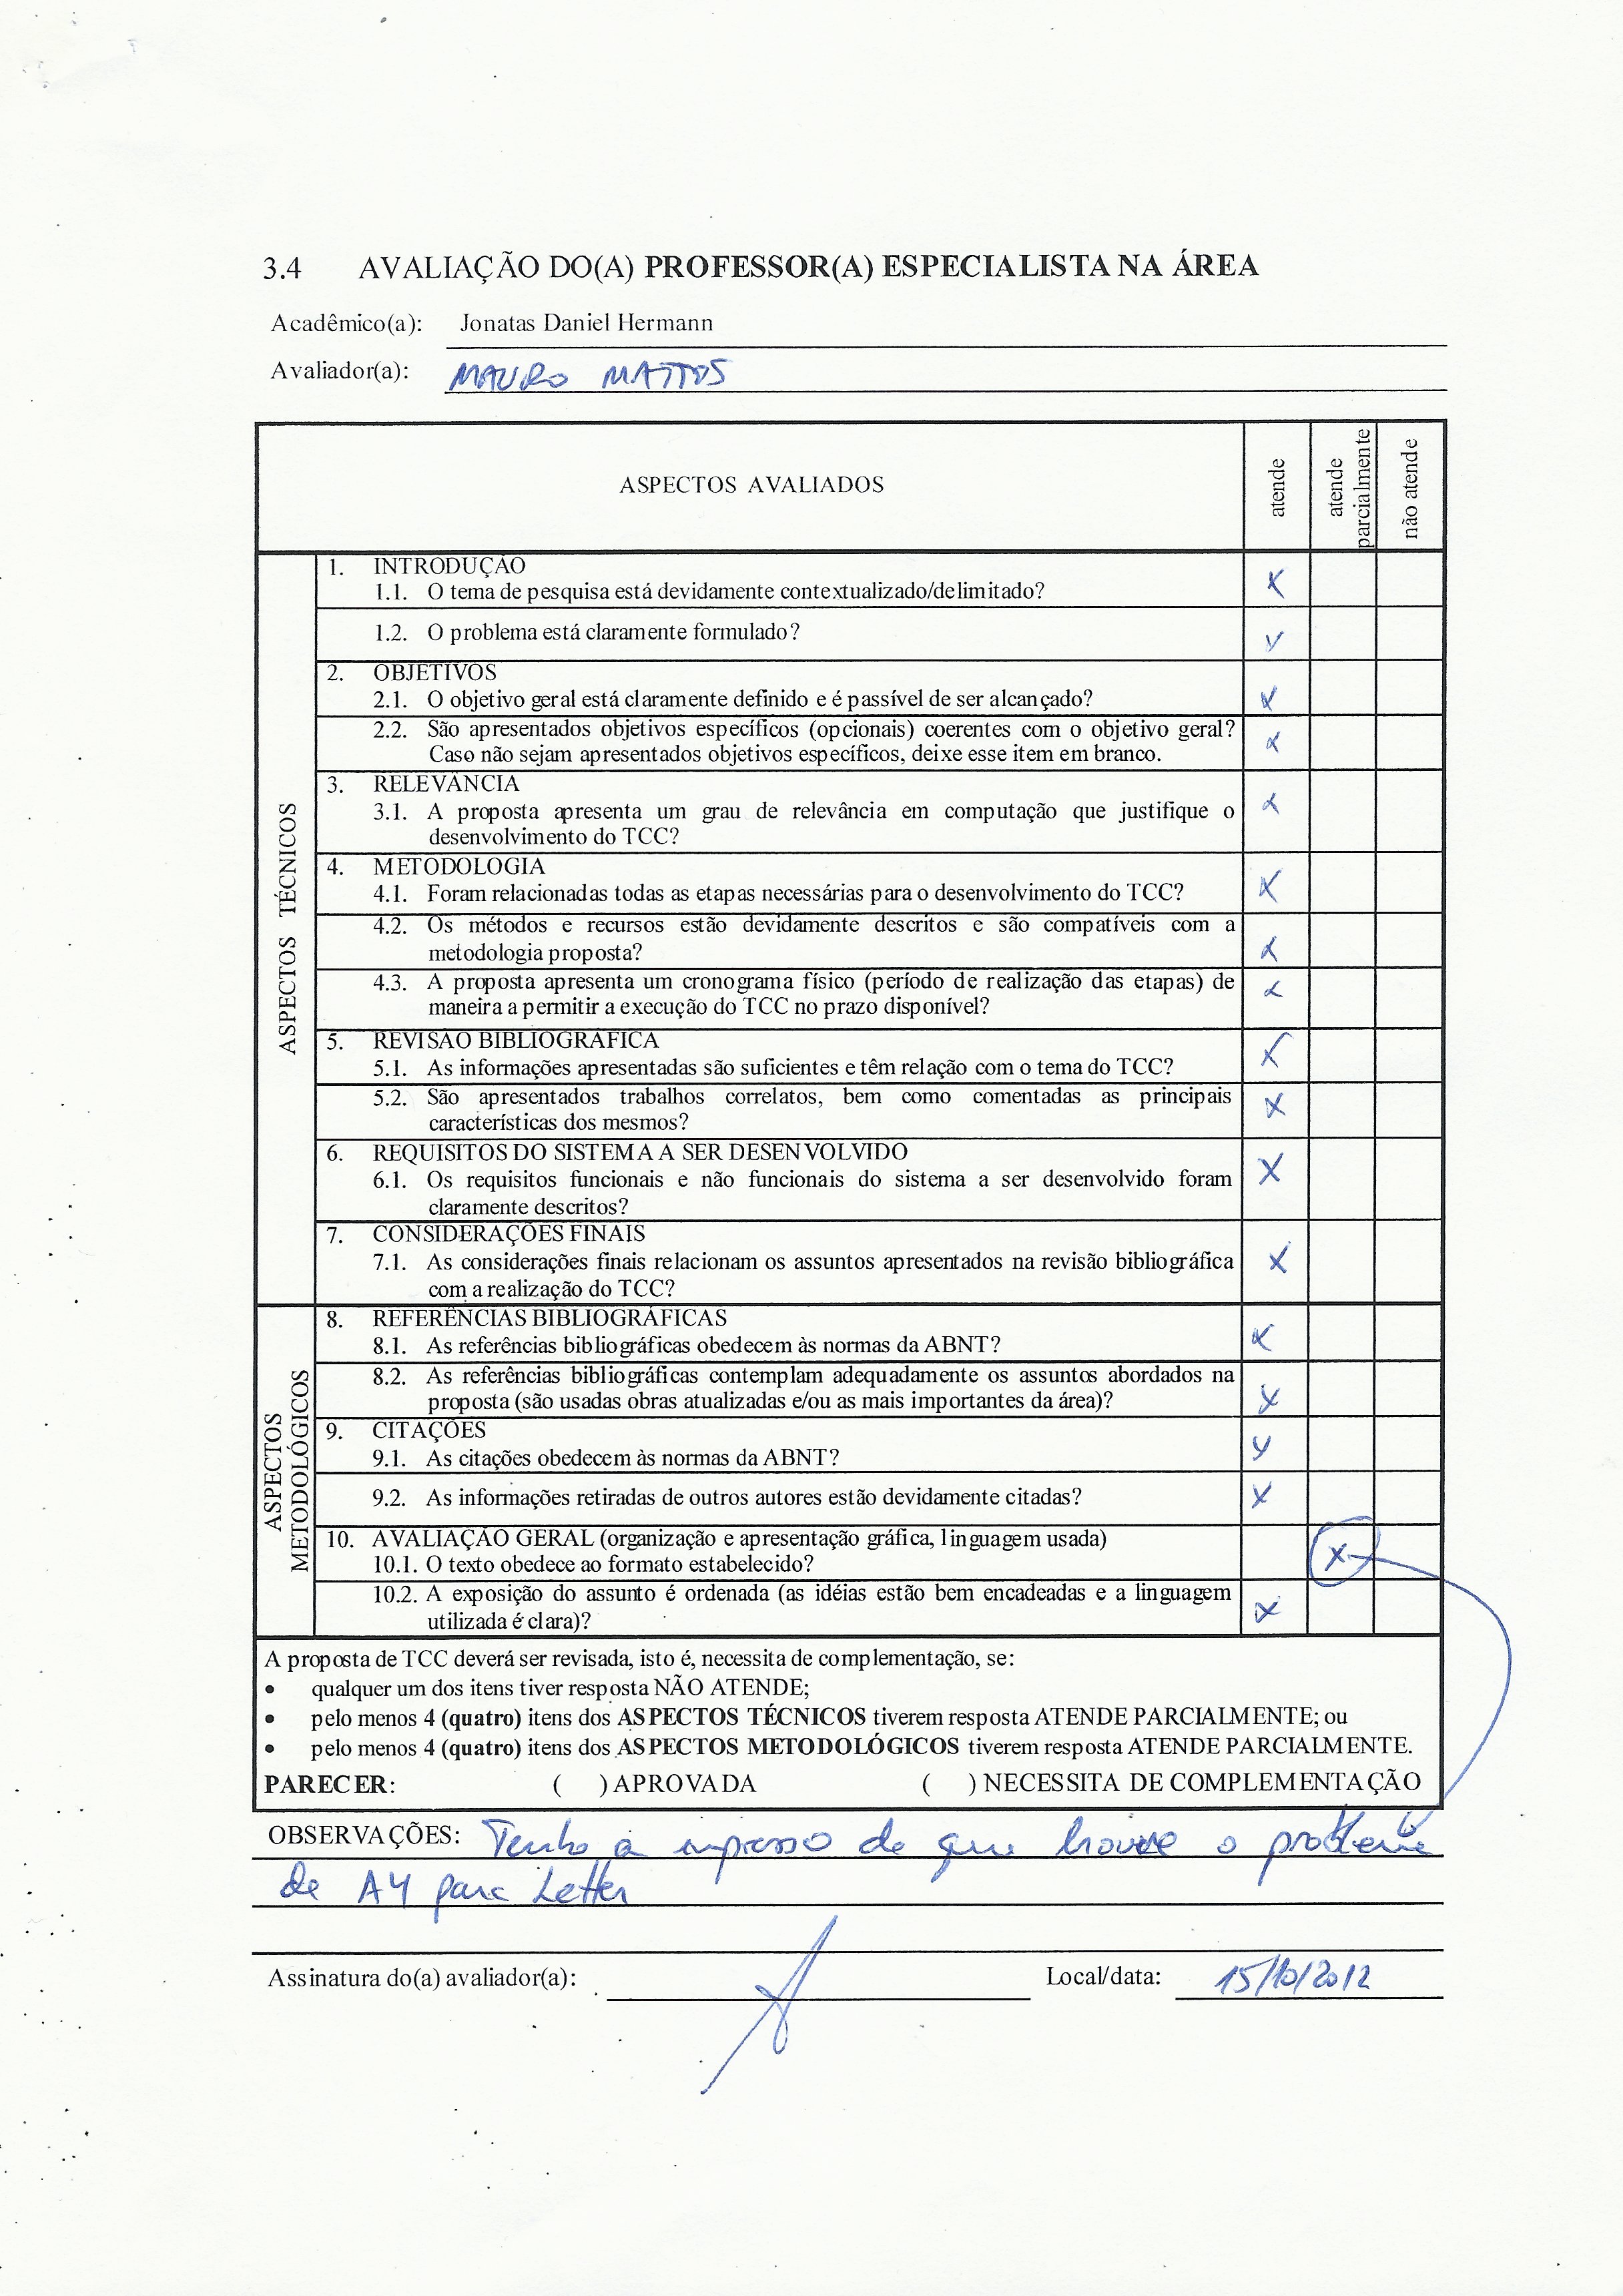 3.4 AVALIAÇÃO DO(A) PROFESSOR(A) ESPECIALISTA NA ÁREA
Acadêmico(a): Jonatas Daniel Hermann
Avaliador(a): MAURO MATTOS
ASPECTOS AVALIADOS
atende
atende parcialmente
não atende
ASPECTOS TÉCNICOS
1. INTRODUÇÃO
1.1. O tema de pesquisa está devidamente contextualizado/delimitado? X
1.2. O problema está claramente formulado? X
2. OBJETIVOS
2.1. O objetivo geral está claramente definido e é passível de ser alcançado? X
2.2. São apresentados objetivos específicos (opcionais) coerentes com o objetivo geral? X
Caso não sejam apresentados objetivos específicos, deixe esse item em branco.
3. RELEVÂNCIA
3.1. A proposta apresenta um grau de relevância em computação que justifique o X
desenvolvimento do TCC?
4. METODOLOGIA
4.1. Foram relacionadas todas as etapas necessárias para o desenvolvimento do TCC? X
4.2. Os métodos e recursos estão devidamente descritos e são compatíveis com a
metodologia proposta? X
4.3. A proposta apresenta um cronograma físico (período de realização das etapas) de X
maneira a permitir a execução do TCC no prazo disponível?
5. REVISÃO BIBLIOGRÁFICA
5.1. As informações apresentadas são suficientes e têm relação com o tema do TCC? X
5.2. São apresentados trabalhos correlatos, bem como comentadas as principais X
características dos mesmos?
6. REQUISITOS DO SISTEMA A SER DESENVOLVIDO
6.1. Os requisitos funcionais e não funcionais do sistema a ser desenvolvido foram X
claramente descritos?
7. CONSIDERAÇÕES FINAIS
7.1. As considerações finais relacionam os assuntos apresentados na revisão bibliográfica X
com a realização do TCC?
ASPECTOS METODOLÓGICOS
8. REFERÊNCIAS BIBLIOGRÁFICAS
8.1. As referências bibliográficas obedecem às normas da ABNT? X
8.2. As referências bibliográficas contemplam adequadamente os assuntos abordados na
proposta (são usadas obras atualizadas e/ou as mais importantes da área)? X
9. CITAÇÕES
9.1. As citações obedecem às normas da ABNT? X
9.2. As informações retiradas de outros autores estão devidamente citadas? X
10. AVALIAÇÃO GERAL (organização e apresentação gráfica, linguagem usada)
10.1. O texto obedece ao formato estabelecido? X
10.2. A exposição do assunto é ordenada (as idéias estão bem encadeadas e a linguagem
utilizada é clara)? X
A proposta de TCC deverá ser revisada, isto é, necessita de complementação, se:
• qualquer um dos itens tiver resposta NÃO ATENDE;
• pelo menos 4 (quatro) itens dos ASPECTOS TÉCNICOS tiverem resposta ATENDE PARCIALMENTE; ou
• pelo menos 4 (quatro) itens dos ASPECTOS METODOLÓGICOS tiverem resposta ATENDE PARCIALMENTE.
PARECER: ( ) APROVADA ( ) NECESSITA DE COMPLEMENTAÇÃO
OBSERVAÇÕES: Tenho a impresso de que houve o problema
de A4 para Letter
Assinatura do(a) avaliador(a): Local/data: 15/10/2012